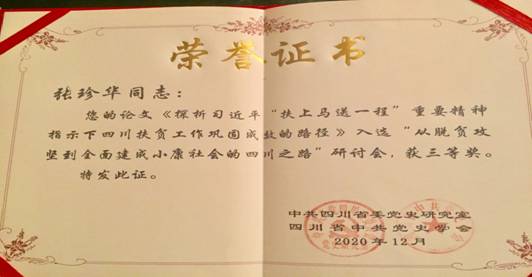 荣誉证书
张珍华同志：
您的论文《探析习近平“扶上马送一程”重要精神
指示下四川扶贫工作巩固成效的路径》入选“从脱贫攻
坚到全面建成小康社会的四川之路”研讨会，获三等奖。
特发此证。
中共四川省委党史研究室
四川省中共党史学会
2020年12月